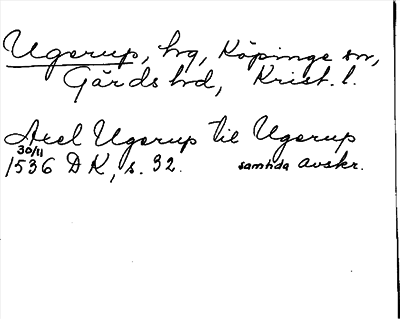 Ugerup, hg, Köpinge sn,
Gärds hd, Krist. l.
Axel Ugerup til Ugerup
30/11
1536 DK, s. 32. samtida avskr.